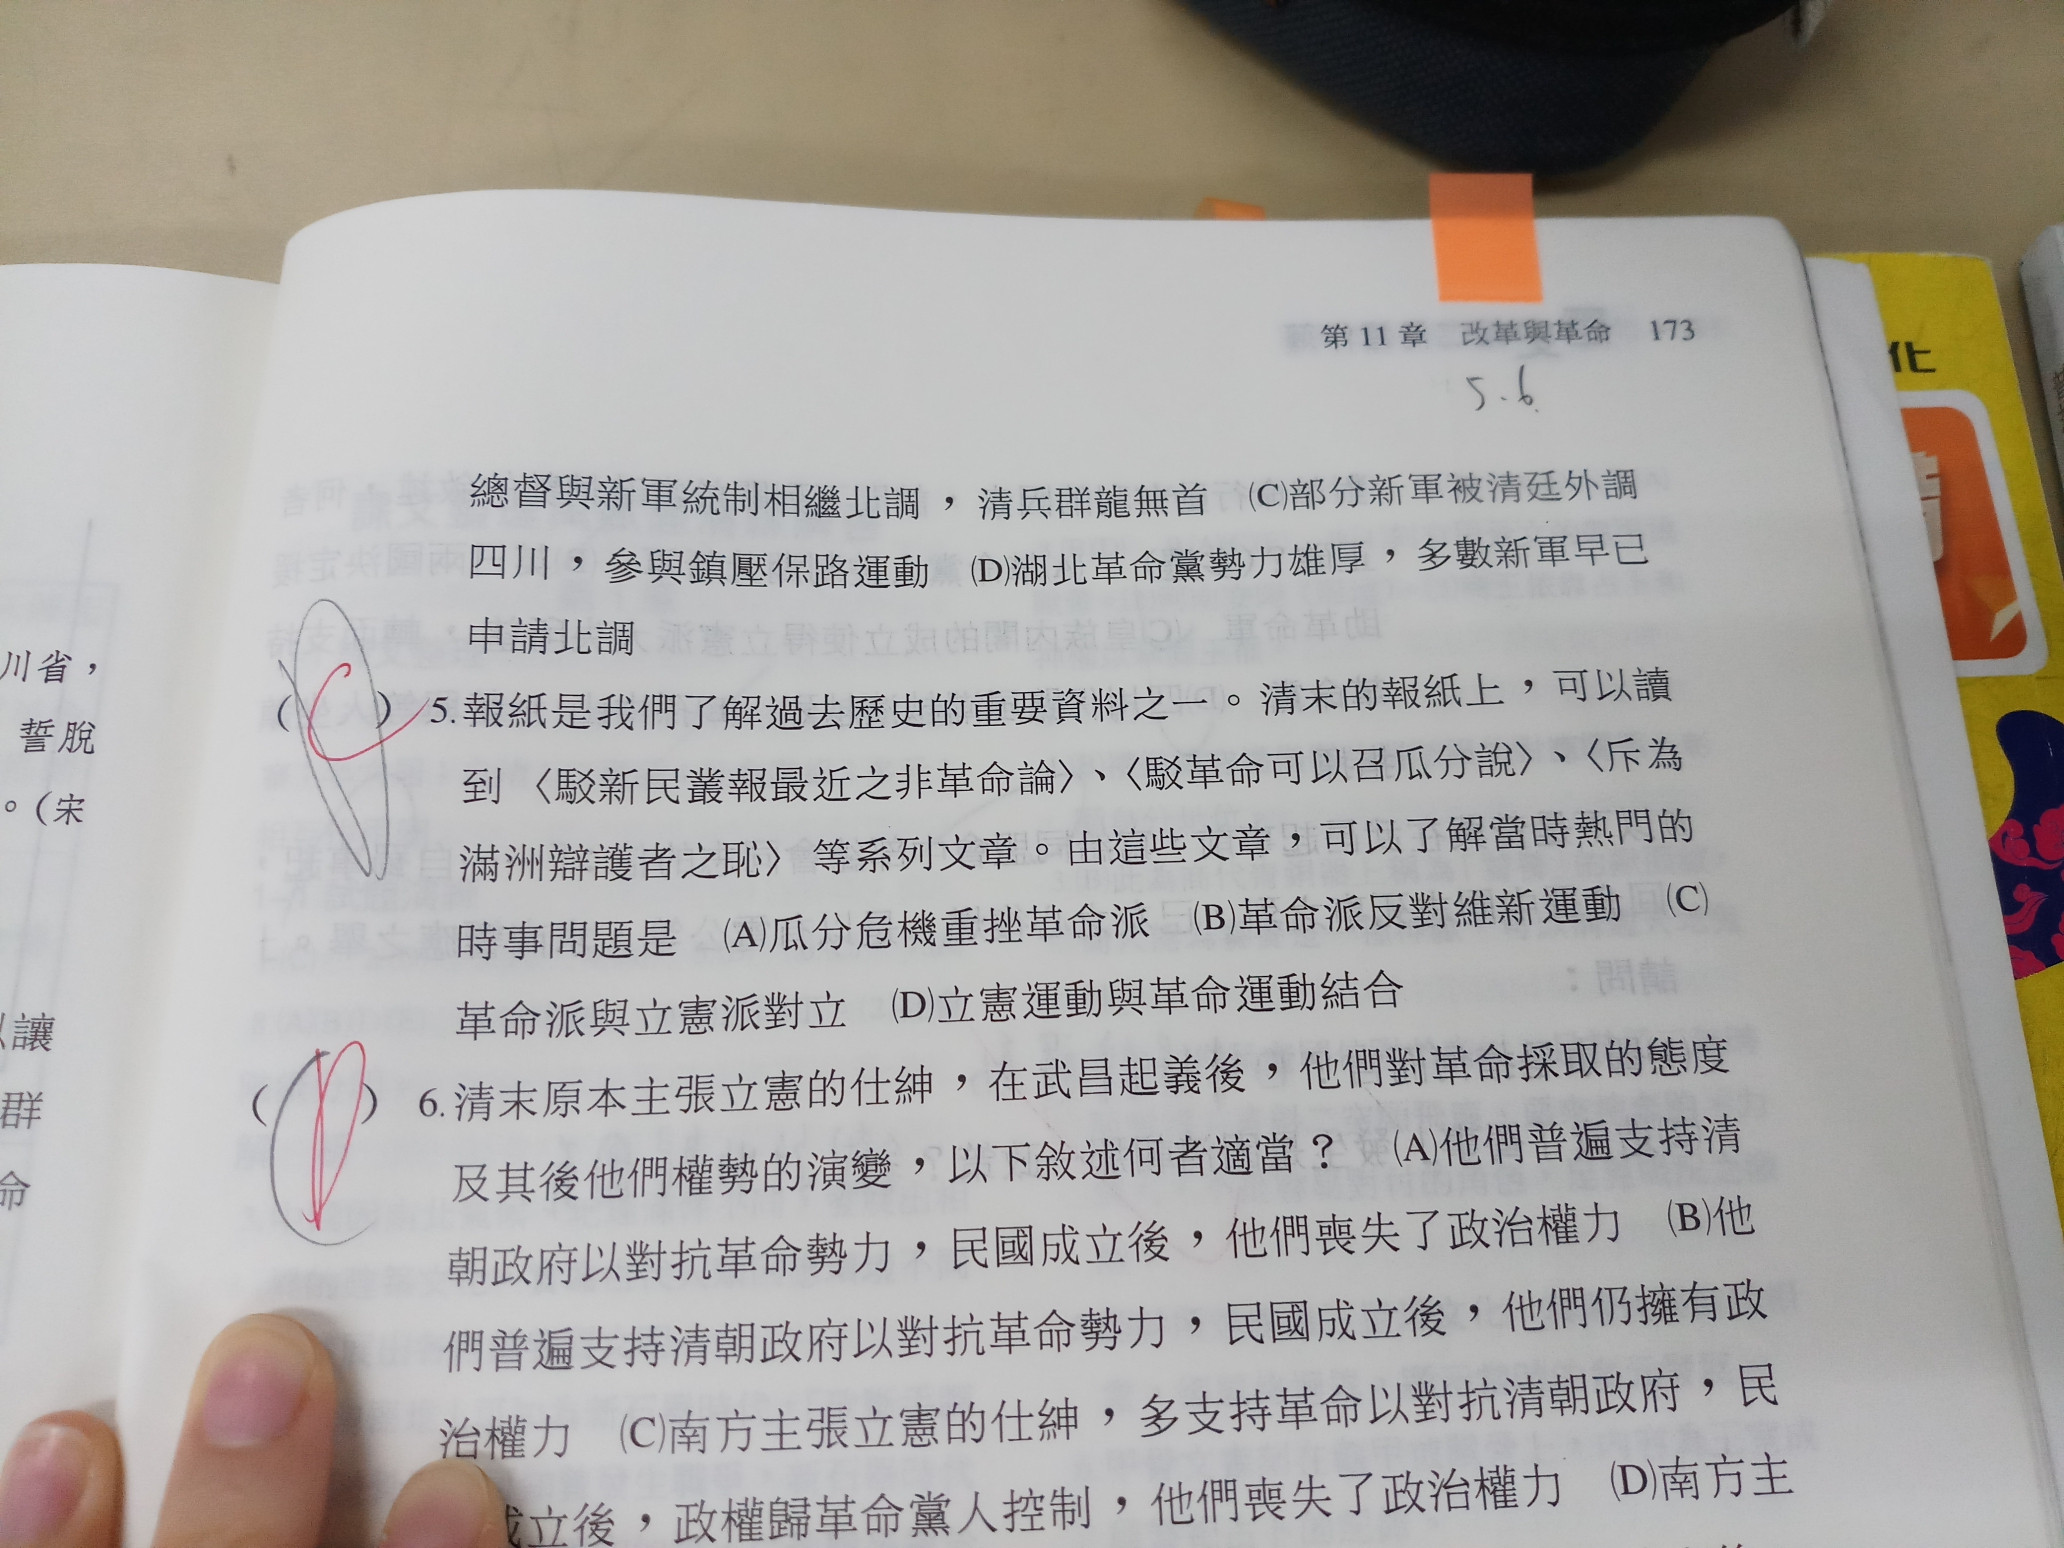 第 11 章 改革與革命 173
5.6
總督與新軍統制相繼北調，清兵群龍無首 (C)部分新軍被清廷外調
四川，參與鎮壓保路運動 (D)湖北革命黨勢力雄厚，多數新軍早已
申請北調
( C ) 5.報紙是我們了解過去歷史的重要資料之一。清末的報紙上，可以讀
到〈駁新民叢報最近之非革命論〉、〈駁革命可以召瓜分說〉、〈斥為
滿洲辯護者之恥〉等系列文章。由這些文章，可以了解當時熱門的
時事問題是 (A)瓜分危機重挫革命派 (B)革命派反對維新運動 (C)
革命派與立憲派對立 (D)立憲運動與革命運動結合
( D ) 6.清末原本主張立憲的仕紳，在武昌起義後，他們對革命採取的態度
及其後他們權勢的演變，以下敘述何者適當？ (A)他們普遍支持清
朝政府以對抗革命勢力，民國成立後，他們喪失了政治權力 (B)他
們普遍支持清朝政府以對抗革命勢力，民國成立後，他們仍擁有政
治權力 (C)南方主張立憲的仕紳，多支持革命以對抗清朝政府，民
成立後，政權歸革命黨人控制，他們喪失了政治權力 (D)南方主
川省，
誓脫
。(宋
讓
群
命
化